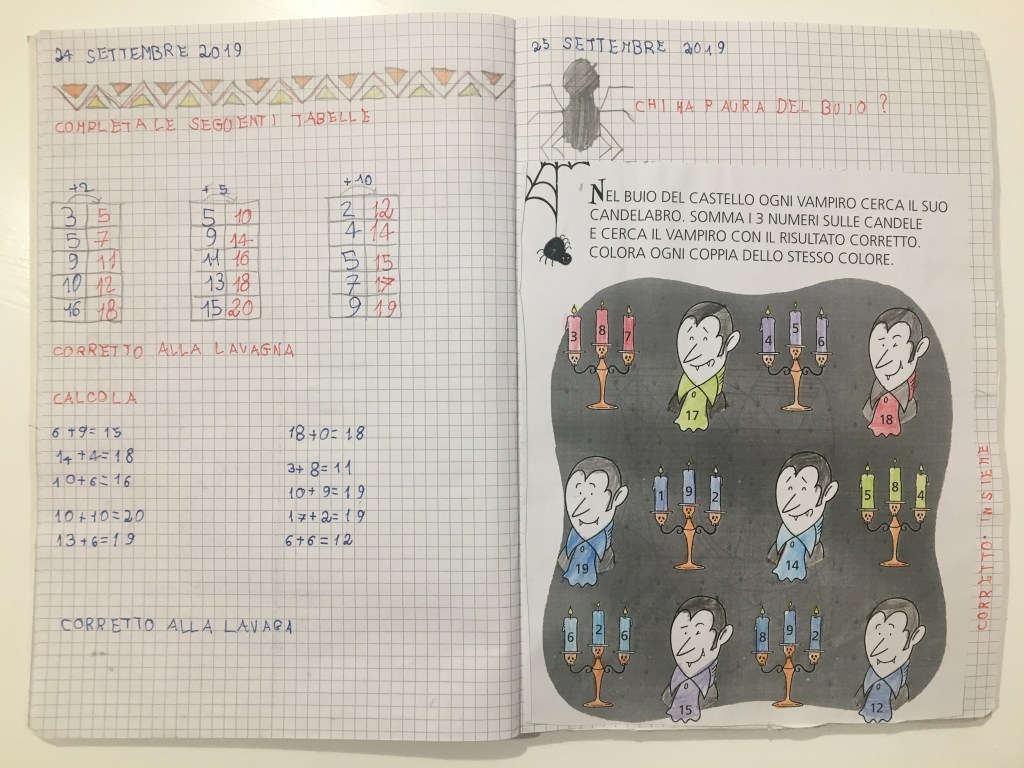 24 SETTEMBRE 2019
COMPLETA LE SEGUENTI TABELLE
+2
3 5
5 7
9 11
10 12
16 18
+5
5 10
9 14
11 16
13 18
15 20
+10
2 12
4 14
5 15
7 17
9 19
CORRETTO ALLA LAVAGNA
CALCOLA
6+9=15
14+4=18
10+6=16
10+10=20
13+6=19
18+0=18
3+8=11
10+9=19
17+2=19
6+6=12
CORRETTO ALLA LAVAGA
25 SETTEMBRE 2019
CHI HA PAURA DEL BUIO?
NEL BUIO DEL CASTELLO OGNI VAMPIRO CERCA IL SUO
CANDELABRO. SOMMA I 3 NUMERI SULLE CANDELE
E CERCA IL VAMPIRO CON IL RISULTATO CORRETTO.
COLORA OGNI COPPIA DELLO STESSO COLORE.
3 8 7
17
4 5 6
18
19
1 9 2
14
5 8 4
6 2 6
15
8 9 2
12
CORRETTO INSIEME